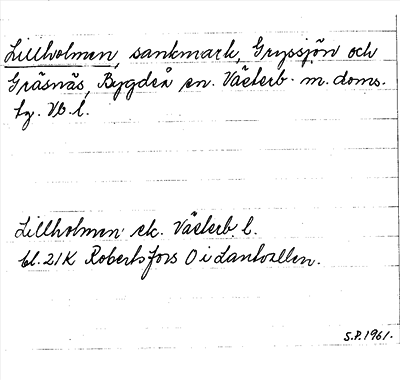 Lillholmen, sankmark, Gryssjön och
Gräsnäs, Bygdeå sn. Västerb. m. doms.
tg. VB. l.
Lillholmen ek. Västerb. l.
bl. 21K Robertsfors O i kanten.
S.P. 1961.